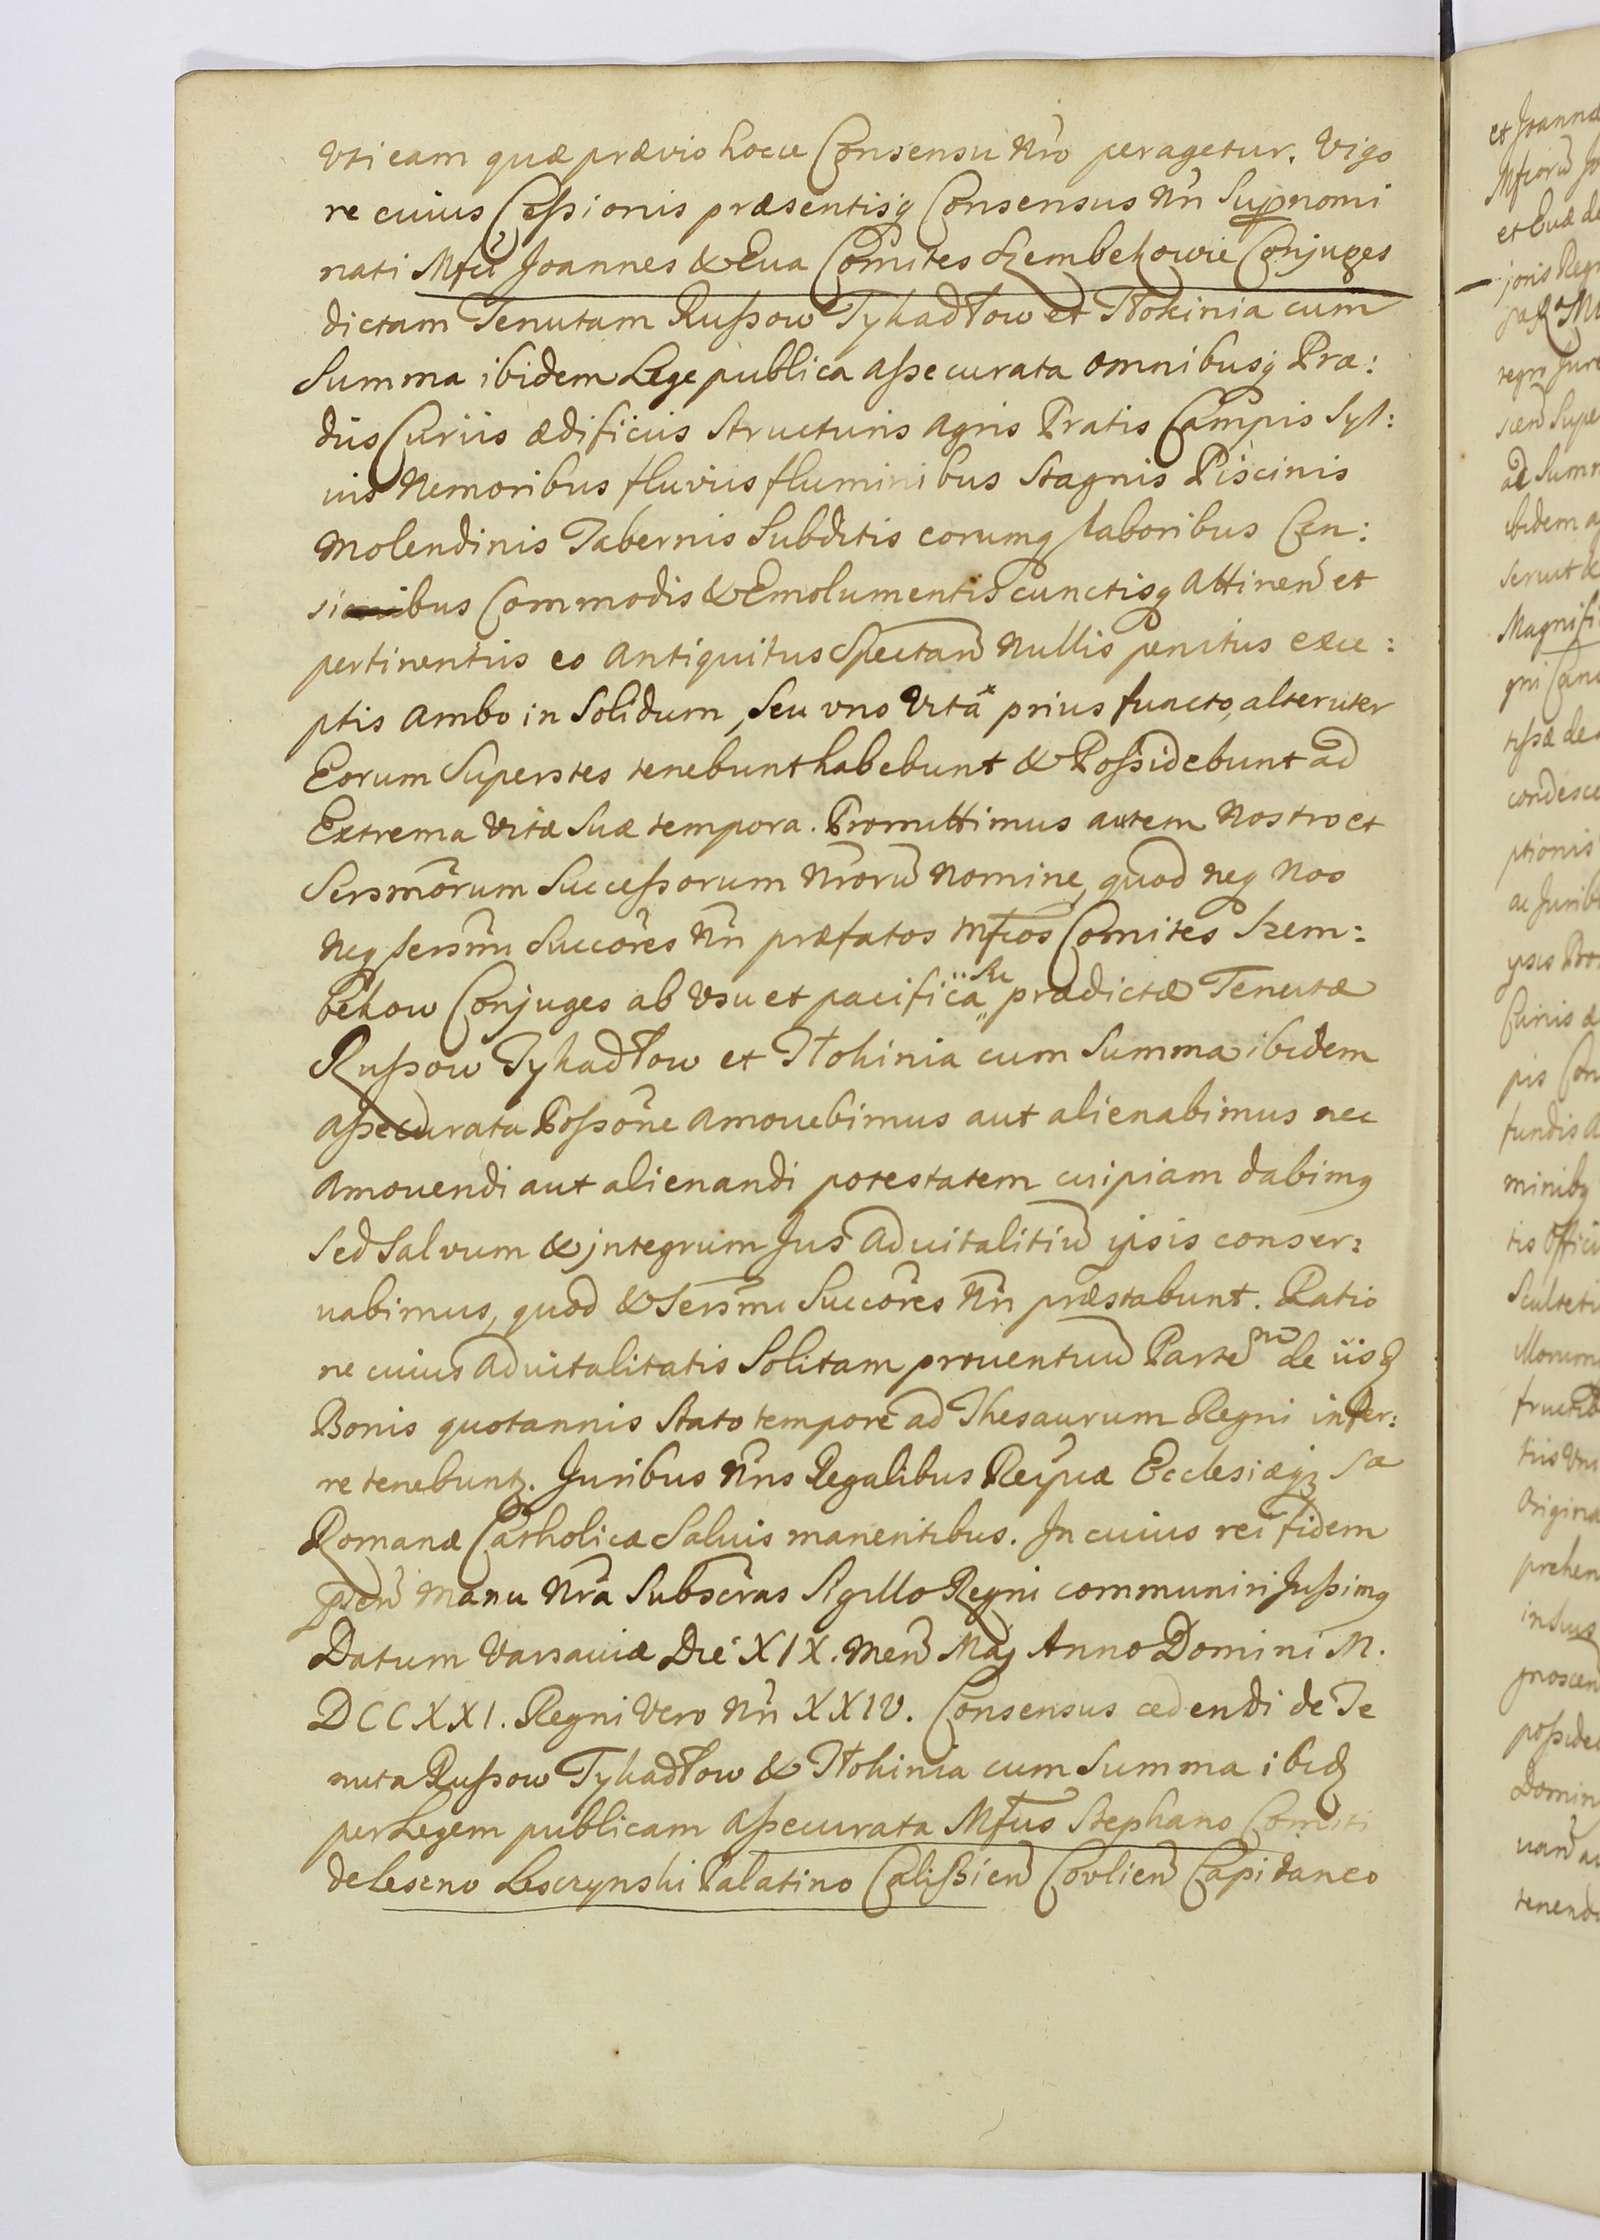 Vti eam quæ prævio hocce Consensu Nr̃o peragetur. Vigo
re cuius Cessionis præsentisq̨ Consensus Nr̃i Supnomi
nati Mfci Joannes & Eua Comites Szembekowie Conjuges
dictam Tenutam Russow Tykadłow et Tłokinia cum
Summa ibidem Lege publica assecurata omnibusq̨ Præ:
diis Curiis ædificiis Structuris Agris Pratis Campis Syl:
uis Nemoribus fluviis fluminibus Stagnis Piscinis
Molendinis Tabernis Subditis eorumq̨ laboribus Cen:
sibus Commodis & Emolumentis cunctisq̨ Attinen̄ et
pertinentiis eo Antiquitus Spectan̄ Nullis penitus exce:
ptis Ambo in Solidum, Seu vno Vitâ prius functo, alteruter
Eorum Superstes tenebunt habebunt & Possidebunt ad
Extrema Vitæ Suæ tempora. Promittimus autem Nostro et
Sersmõrum Successorum Nr̃orũ Nomine, quod neq̨ Nos
Neq̨ Sersmi Succõres Nr̃i præfatos Mfcos Comites Szem:
bekow Conjuges ab Vsu et pacifica prædictæ Tenutæ
Russow Tykadłow et Tłokinia cum Summa ibidem
assecurata Possõne Amouebimus aut alienabimus nec
Amouendi aut alienandi potestatem cuipiam dabimq̨
Sed Salvum & jntegrum Jus Aduitalitiũ ipsis conser:
uabimus, quod & Sersmi Succõres Nr̃i præstabunt. Ratio
ne cuius Aduitalitatis Solitam prouentuũ Parte͠m de iisd̨
Bonis quotannis Stato tempore ad Thesaurum Regni infer:
re tenebuntꝛ. Juribus Nr̃is Regalibus Reipcæ Ecclesiæqꝫ Sæ
Romanæ Catholicæ Saluis manentibus. In cuius rei fidem
pñtes Manu Nr̃a Subscr̃as Sigillo Regni communiri Jussimq̨
Datum Varsauiæ Die XIX. Men̄ Maj Anno Domini M.
DCCXXI. Regni Vero Nr̃i XXIV. Consensus cedendi de Te
nuta Russow Tykadłow & Tłokinia cum Summa ibid̨
per Legem publicam assecurata Mfco Stephano Comiti
de Leszno Lesczynski Palatino Calissien̄ Covlien̄ Capitaneo